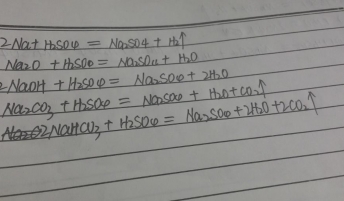 2Na + H₂SO₄ = Na₂SO₄ + H₂↑
Na₂O + H₂SO₄ = Na₂SO₄ + H₂O
2NaOH + H₂SO₄ = Na₂SO₄ + 2H₂O
Na₂CO₃ + H₂SO₄ = Na₂SO₄ + H₂O + CO₂↑
2NaHCO₃ + H₂SO₄ = Na₂SO₄ + 2H₂O + 2CO₂↑